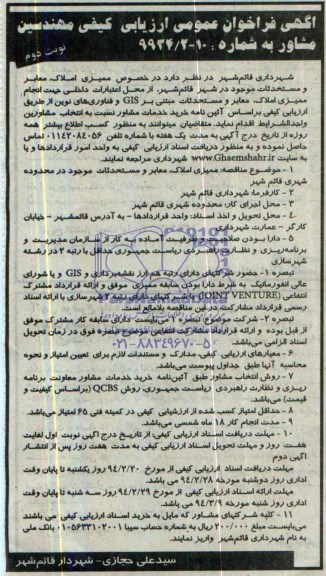 آگهی فراخوان عمومی ارزیابی کیفی مهندسین
مشاور به شماره : ۹۰-۹۹۳۴/۲
نوبت دوم
شهرداری قائم‌شهر در نظر دارد در خصوص ممیزی املاک، معابر
و مستحدثات موجود در شهر قائم‌شهر، از محل اعتبارات داخلی جهت انجام
ممیزی املاک، معابر و مستحدثات مبتنی بر GIS و فناوری‌های نوین از طریق
ارزیابی کیفی براساس آئین نامه خرید خدمات مشاور نسبت به انتخاب مشاورین
واجدالشرایط اقدام نماید. متقاضیان میتوانند به منظور کسب اطلاع بیشتر همه
روزه از تاریخ درج آگهی به مدت یک هفته با شماره تلفن ۰۱۱۴۲۰۸۴۰۵۶ تماس
حاصل نموده و به منظور دریافت اسناد ارزیابی کیفی به واحد امور قراردادها و یا
به سایت www.Ghaemshahr.ir شهرداری مراجعه نمایند.
۱ - موضوع مناقصه: ممیزی املاک، معابر و مستحدثات موجود در محدوده
شهری قائم شهر
۲ - کارفرما: شهرداری قائم شهر
۳ - محل اجرای کار: محدوده شهری قائم شهر
۴ - محل تحویل و اخذ اسناد: واحد قراردادها - به آدرس قائمشهر - خیابان
کارگر - عمارت شهرداری
۵ - دارا بودن صلاحیت و ظرفیت آماده به کار از سازمان مدیریت و
برنامه‌ریزی و نظارت راهبردی ریاست جمهوری حداقل با رتبه ۲ در رشته
شهرسازی
تبصره ۱- حضور شرکتهای دارای رتبه هم ارز نقشه‌برداری و GIS و یا شورای
عالی انفورماتیک به شرط دارا بودن سابقه ممیزی موفق و ارائه قرارداد مشترک
انتفاعی (JOINT VENTURE) با شرکتهای دارای رتبه ۲ شهرسازی با ارائه اسناد
رسمی قرارداد مشارکت، در این مناقصه بلامانع است.
تبصره ۲- شرکت موضوع تبصره ۱ می‌بایست دارای سابقه کار مشترک موفق
از قبل بوده و ارائه قرارداد مشارکت انتفاعی موضوع تبصره فوق در زمان تحویل
اسناد الزامی می‌باشد.
۰۲۱-۸۸۳۴۹۶۷۰-۵
۶ - معیارهای ارزیابی کیفی، مدارک و مستندات لازم برای تعیین امتیاز و نحوه
محاسبه آنها طبق جداول پیوست می‌باشد.
۷ - روش انتخاب مشاور طبق آئین‌نامه خرید خدمات مشاور معاونت برنامه
ریزی و نظارت راهبردی ریاست جمهوری، روش QCBS (براساس کیفیت و
قیمت) می‌باشد.
۸ - حداقل امتیاز کسب شده از ارزشیابی کیفی در کمیته فنی ۶۵ امتیاز می‌باشد.
۹ - مدت انجام کار ۱۸ ماه شمسی می‌باشد.
۱۰ - مهلت دریافت اسناد ارزیابی کیفی: از تاریخ درج آگهی نوبت اول لغایت
هفت روز و مهلت تحویل اسناد ارزیابی کیفی به مدت هفت روز پس از انتشار
آگهی دوم
مهلت دریافت اسناد ارزیابی کیفی از مورخ ۹۴/۲/۲۰ روز یکشنبه تا پایان وقت
اداری روز دوشنبه مورخه ۹۴/۲/۲۸ می باشد.
مهلت ارائه اسناد ارزیابی کیفی از مورخ ۹۴/۲/۲۹ روز سه شنبه تا پایان وقت
اداری روز شنبه مورخه ۹۴/۳/۹ می باشد.
۱۱ - کلیه شرکتهای مشاور که مایل به خرید اسناد ارزیابی کیفی می باشند
می‌بایست مبلغ ۲۰۰/۰۰۰ ریال به شماره حساب سیبا ۰۱۰۵۶۳۳۱۰۲۰۰۱ بانک ملی
به نام شهرداری قائم‌شهر واریز نمایند.
سیدعلی حجازی- شهردار قائم‌شهر